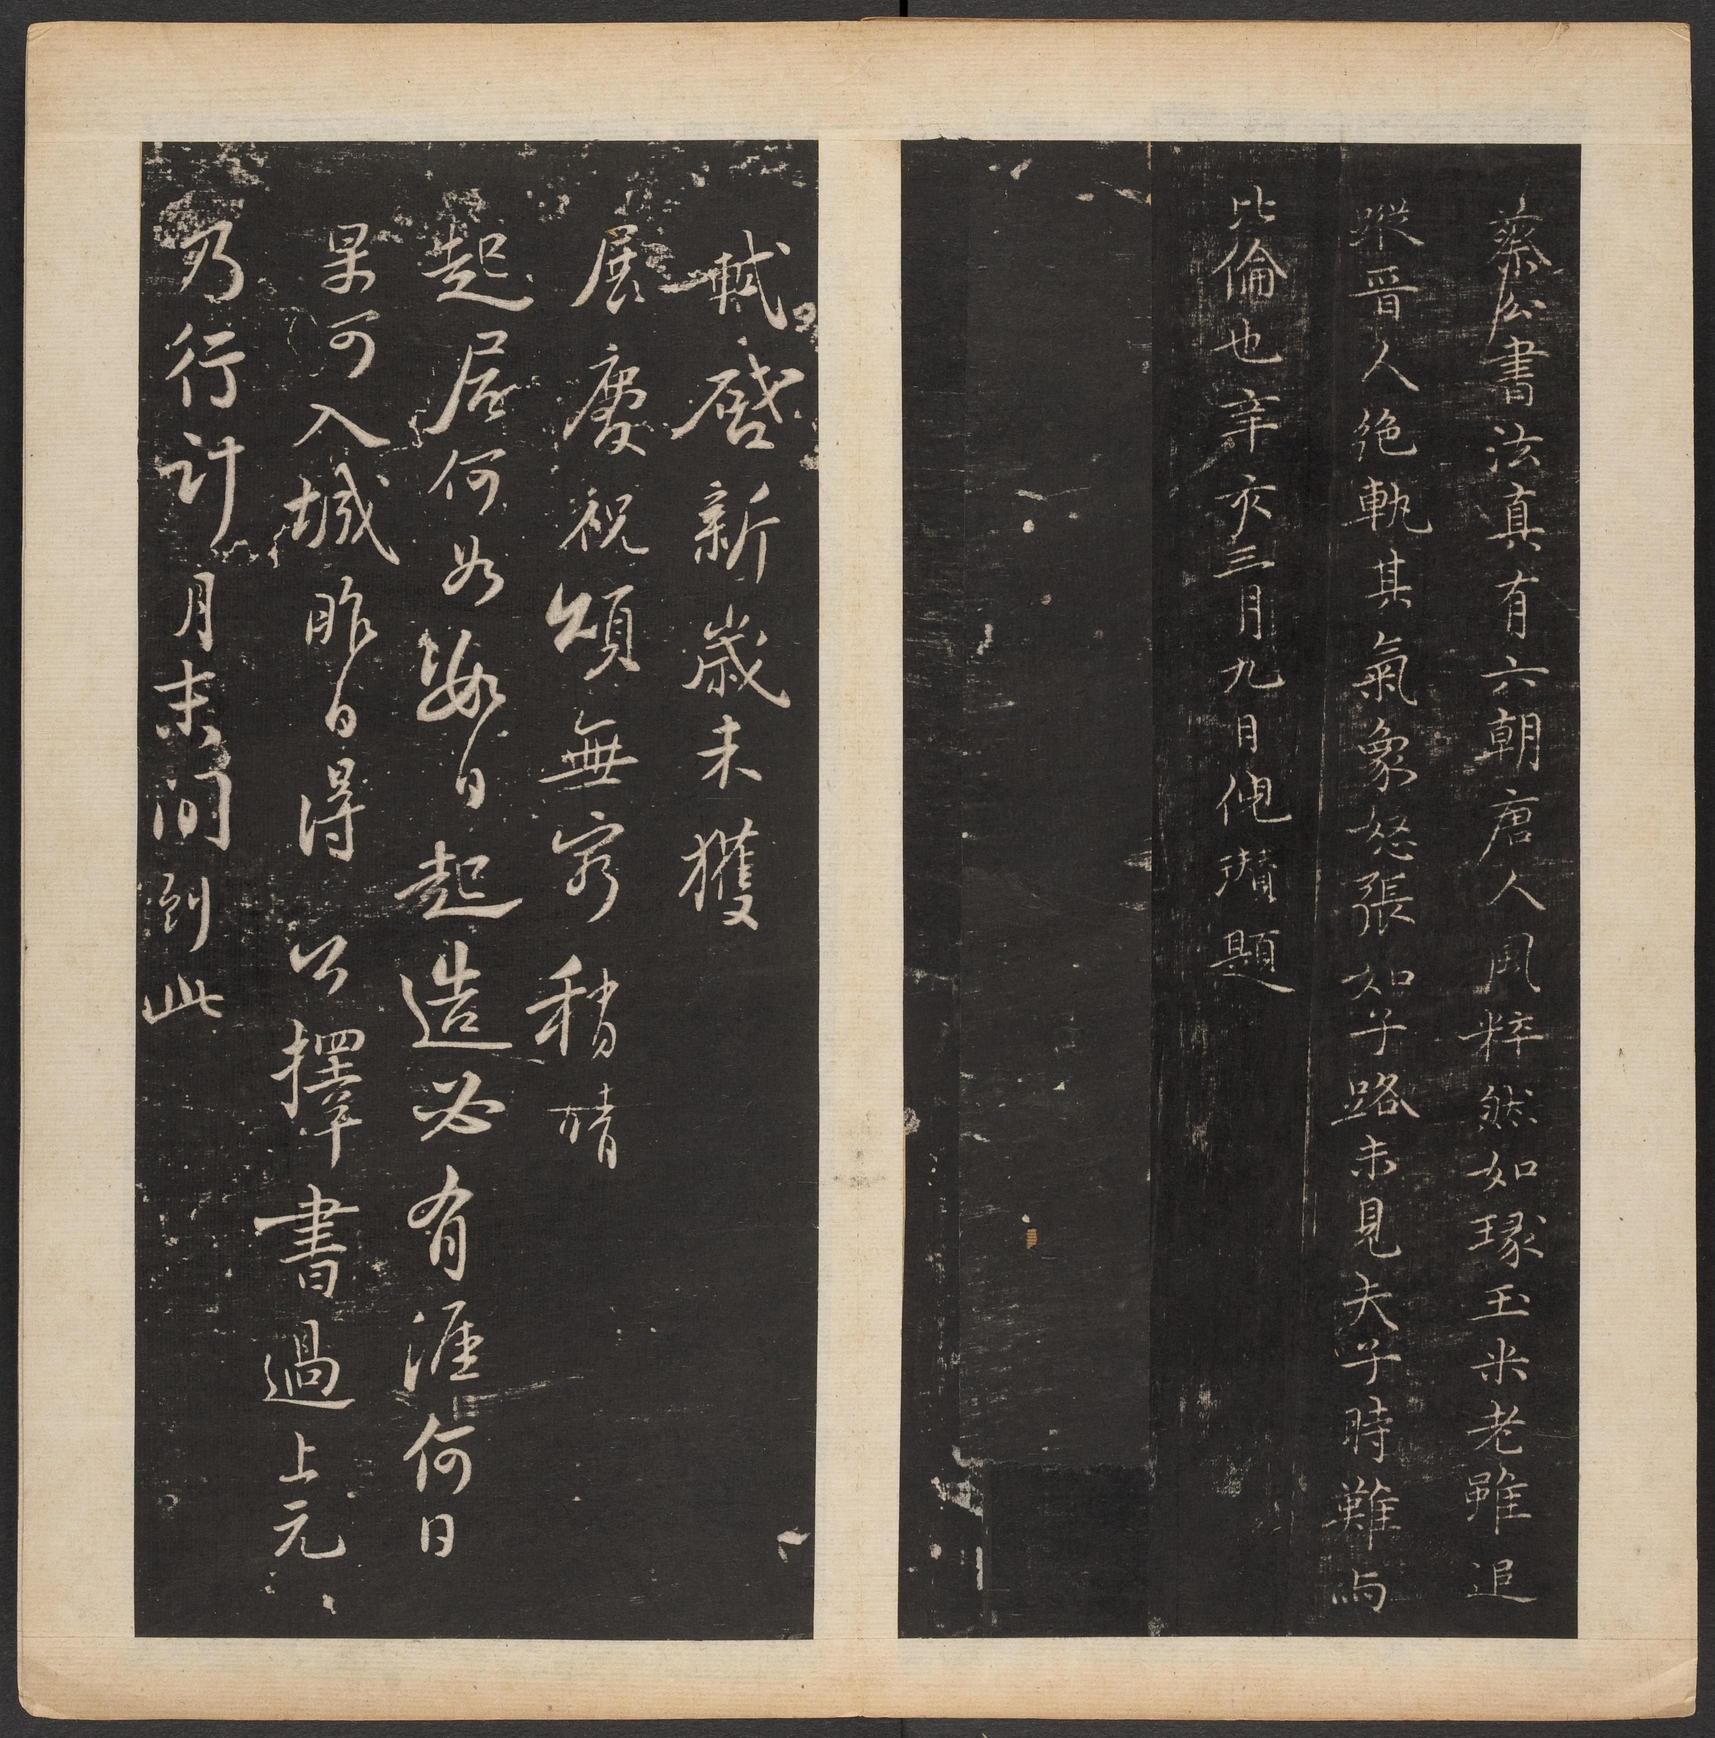 蔡公書法真有六朝唐人風粹然如琢玉米老雖追
蹤晉人絶軌其氣象怒張如子路未見夫子時難與
比倫也辛亥三月九日倪瓚題
軾啓新歲未獲
展慶祝頌無窮稍晴
起居何如數日起造必有涯何日
果可入城昨日得公擇書過上元
乃行計月末間到此